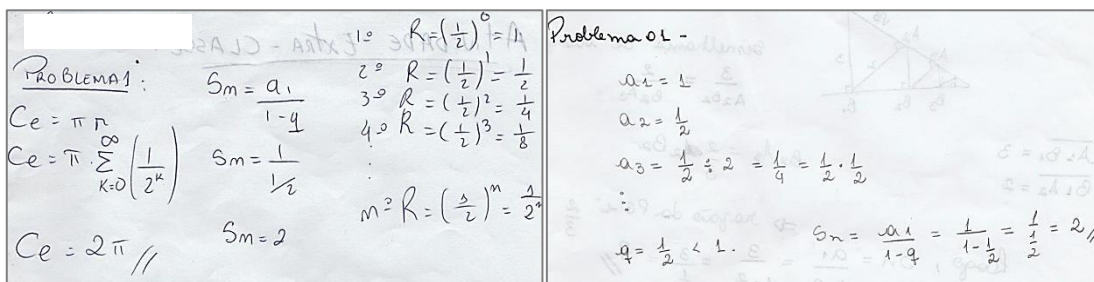 PROBLEMA 1:
Ce = π r
Ce = π · ∑ K=0 ∞ (1/2^K)
Ce = 2π //
Sn = a1/(1-q)
Sn = 1/(1/2)
Sn = 2
1º R = (1/2)^0 = 1
2º R = (1/2)^1 = 1/2
3º R = (1/2)^2 = 1/4
4º R = (1/2)^3 = 1/8
⋮
nº R = (1/2)^n = 1/2^n
Problema 01 -
a1 = 1
a2 = 1/2
a3 = 1/2 ÷ 2 = 1/4 = 1/2 · 1/2
⋮
q = 1/2 < 1.
Sn = a1/(1-q) = 1/(1-1/2) = 1/(1/2) = 2 //